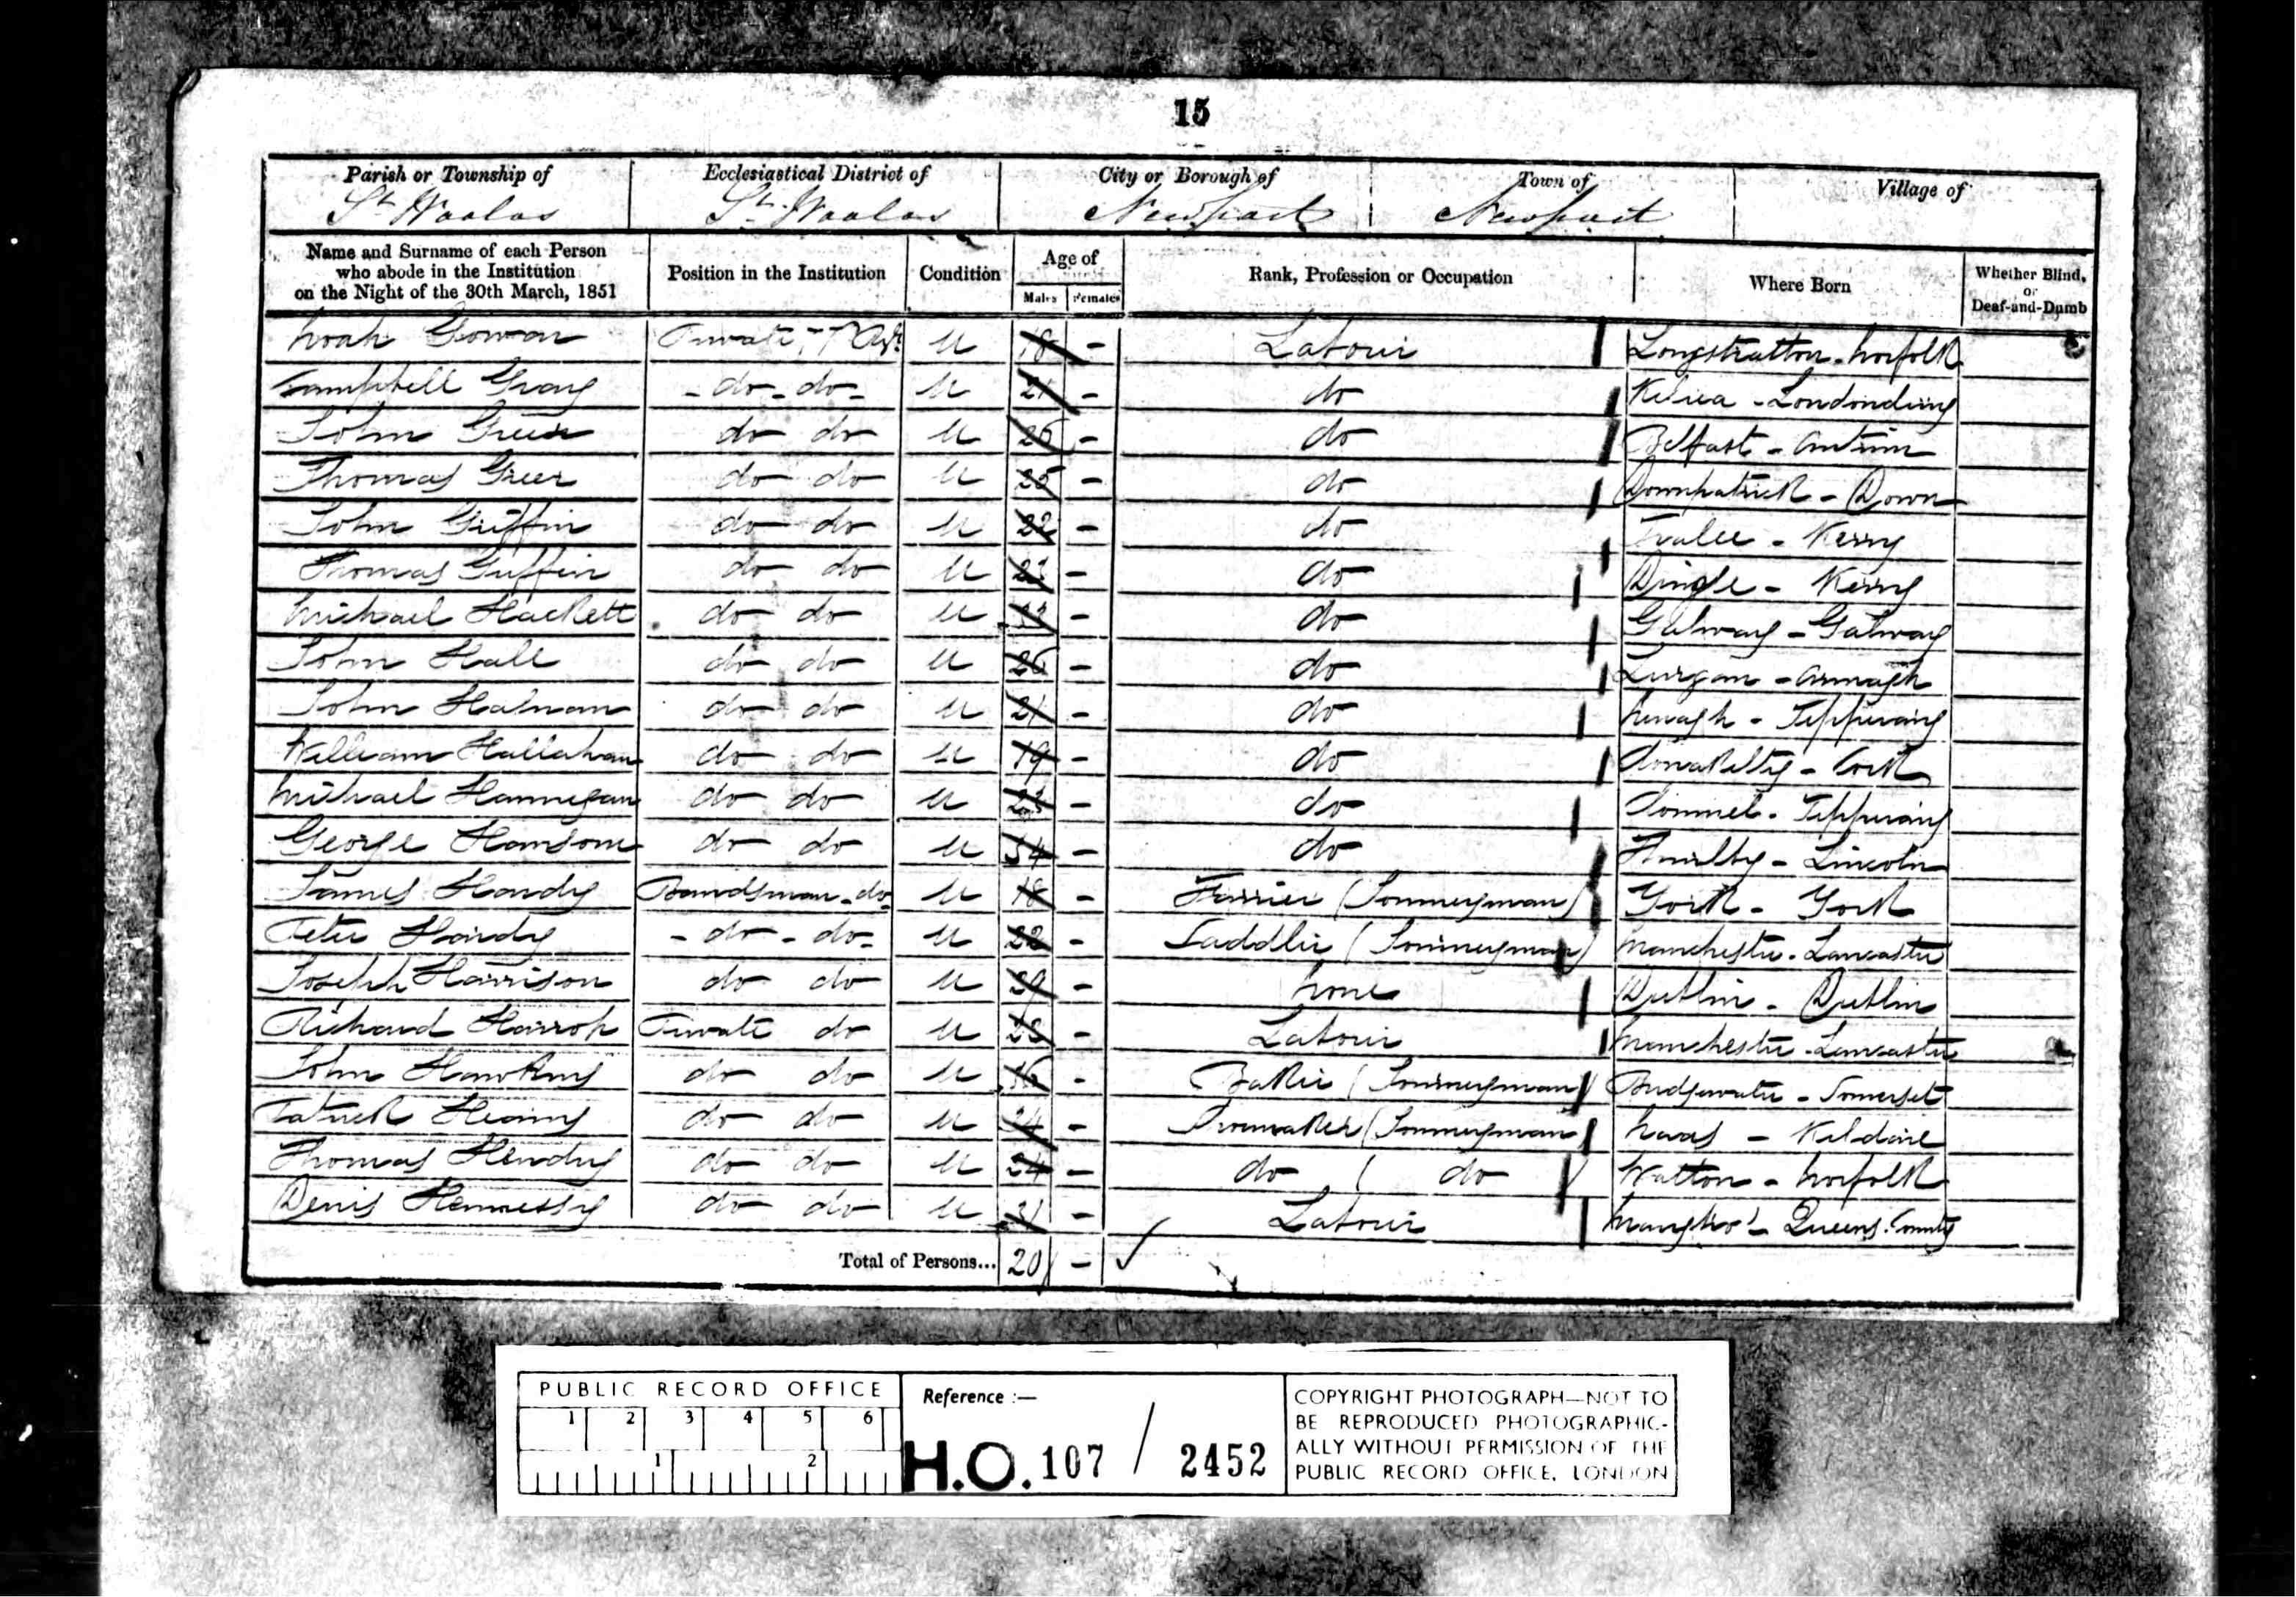 15
Parish or Township of Ecclesiastical District of City or Borough of Town of Village of
St Woolos St Woolos Newport Newport
Name and Surname of each Person who abode in the Institution on the Night of the 30th March, 1851 Position in the Institution Condition Age of Males Females Rank, Profession or Occupation Where Born Whether Blind, or Deaf-and-Dumb
Noah Gowan Private 77 Regt U 18 - Labour Longstratton - Norfolk
Campbell Gray - do - do - U 21 - do - Londonderry
John Green do do U 26 - do Belfast - Antrim
Thomas Greer do do U 25 - do Downpatrick - Down
John Griffin do do U 22 - do Tralee - Kerry
Thomas Griffin do do U 23 - do Dingle - Kerry
Michael Hackett do do U - do Galway - Galway
John Hall do do U 26 - do Lurgan - Armagh
John Halnan do do U 21 - do Nenagh - Tipperary
William Hallahan do do U 19 - do Clonakilty - Cork
Michael Hannegan do do U 23 - do Clonmel - Tipperary
George Hansom do do U 34 - do - Lincoln
James Hardy Bandsman - do - U 18 - Farrier (Journeyman) York - York
Peter Hardy - do - do - U 22 - Saddler (Journeyman) Manchester - Lancaster
Joseph Harrison do do U 29 - None Dublin - Dublin
Richard Harrop Private do U 23 - Labour Manchester - Lancaster
John Hawkins do do U - Baker (Journeyman) Bridgewater - Somerset
Patrick Heany do do U 24 - Shoemaker (Journeyman) Naas - Kildare
Thomas Hendry do do U 24 - do ( do ) Watton - Norfolk
Denis Hennessy do do U 31 - Labour - Queens County
Total of Persons... 20 -
PUBLIC RECORD OFFICE
1 2 3 4 5 6
1 2
Reference :-
H.O. 107 / 2452
COPYRIGHT PHOTOGRAPH—NOT TO
BE REPRODUCED PHOTOGRAPHIC-
ALLY WITHOUT PERMISSION OF THE
PUBLIC RECORD OFFICE, LONDON